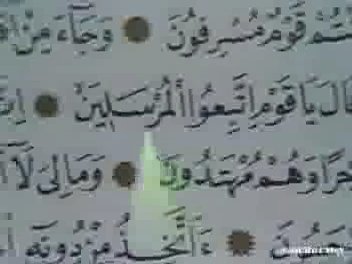 أَنْتُمْ قَوْمٌ مُسْرِفُونَ ۝ وَجَاءَ مِنْ
قَالَ يَا قَوْمِ اتَّبِعُوا الْمُرْسَلِينَ ۝
وَهُمْ مُهْتَدُونَ ۝ وَمَا لِيَ لَا
۝ ءَأَتَّخِذُ مِنْ دُونِهِ